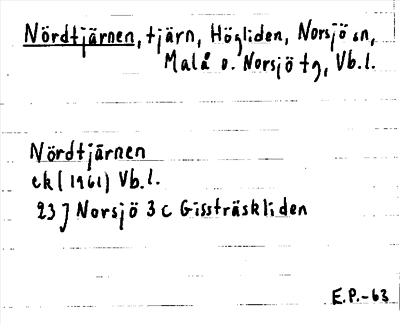 Nördtjärnen, tjärn, Högliden, Norsjö sn,
Malå o. Norsjö tg, Vb.l.
Nördtjärnen
ek (1961) Vb.l.
23J Norsjö 3 c Gissträskliden
E.P.-63